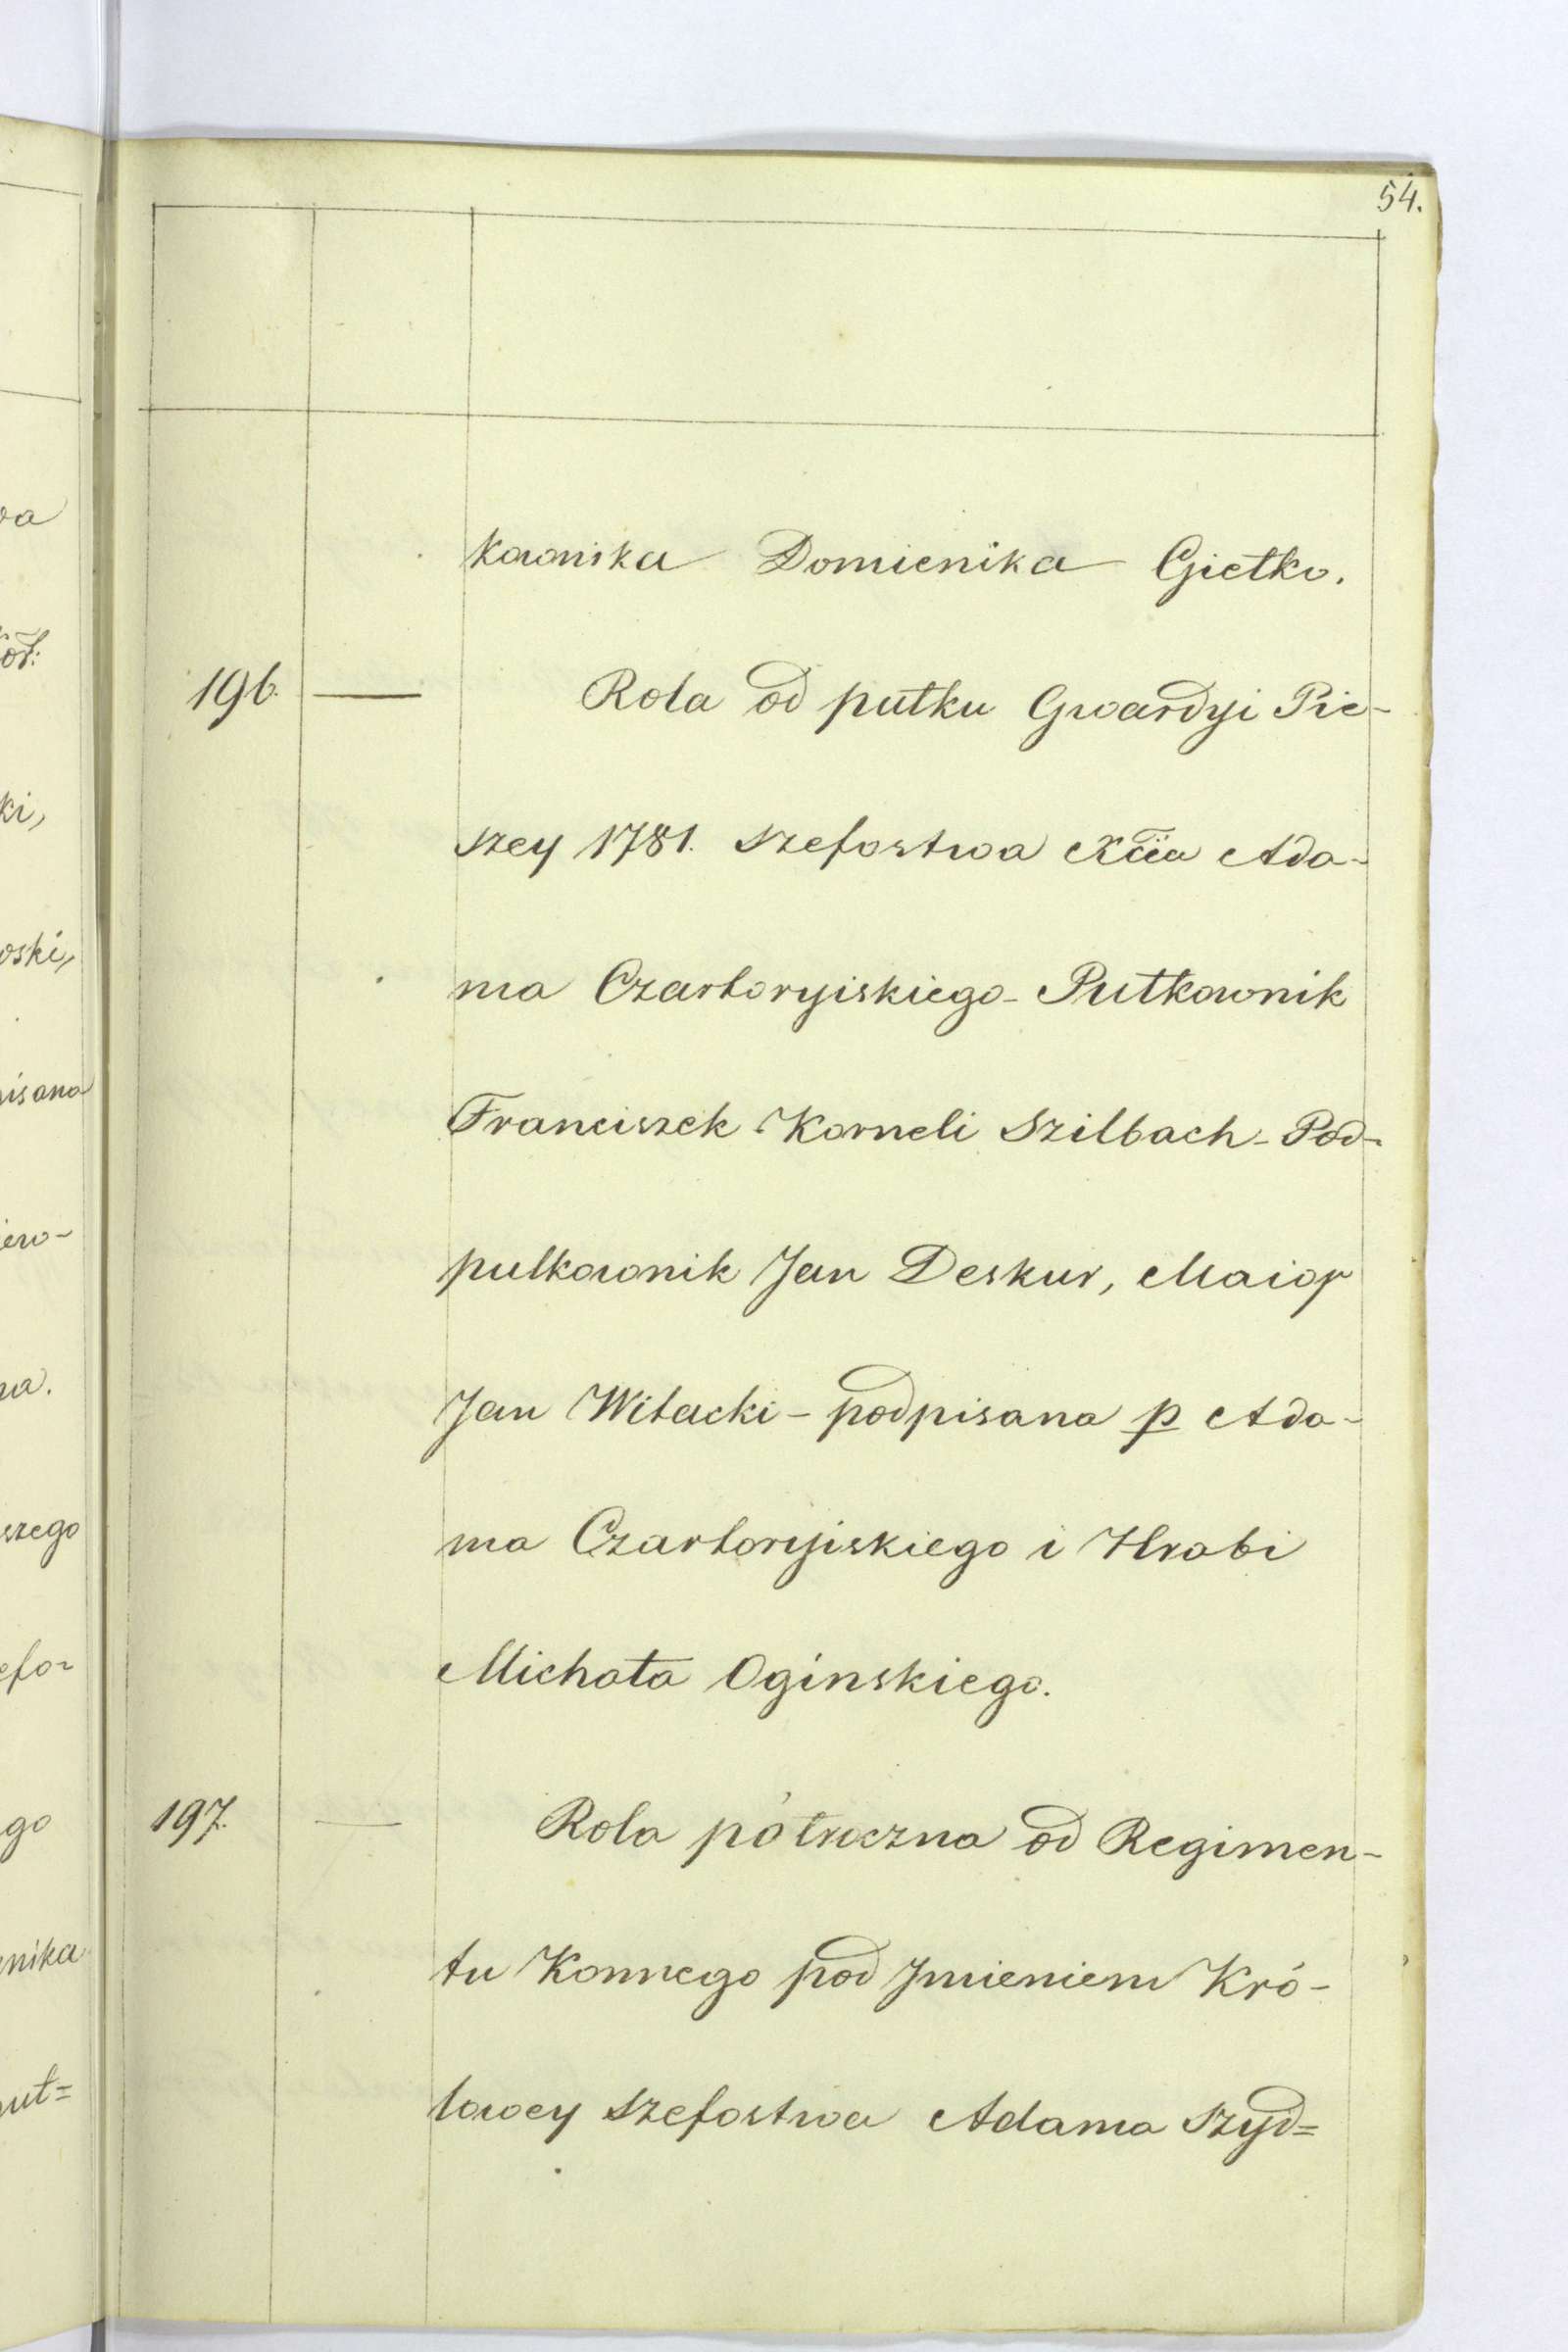 54.
kownika Domienika Giełko.
196. — Rola od pułku Gwardyi Pie-
szey 1781. Szefostwa Xcia Ada-
ma Czartoryiskiego - Pułkownik
Franciszek Korneli Szilbach - Pod-
pulkownik Jan Deskur, Maior
Jan Witacki - podpisana p Ada-
ma Czartoryiskiego i Hrabi
Michała Oginskiego.
197. — Rola półroczna od Regimen-
tu Konnego pod Jmieniem Kró-
lowey Szefostwa Adama Szyd=